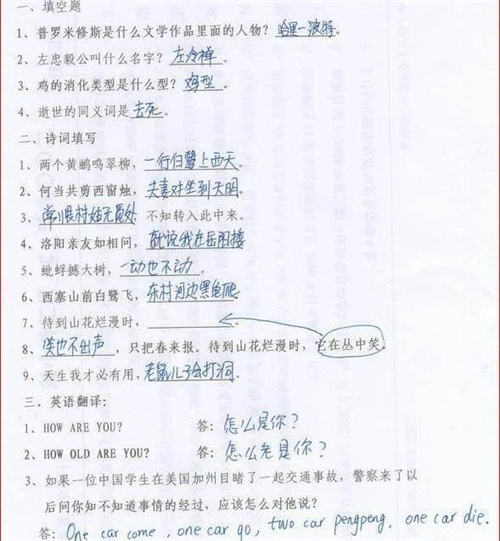 一、填空题
1、普罗米修斯是什么文学作品里面的人物？哈里一波特。
2、左忠毅公叫什么名字？左冷禅。
3、鸡的消化类型是什么型？鸡型。
4、逝世的同义词是去死。
二、诗词填写
1、两个黄鹂鸣翠柳，一行白鹭上西天。
2、何当共剪西窗烛，夫妻对坐到天明。
3、常恨村姑无觅处 不知转入此中来。
4、洛阳亲友如相问，就说我在岳阳楼
5、蚍蜉撼大树，一动也不动。
6、西塞山前白鹭飞，东村河边黑龟爬
7、待到山花烂漫时，________。
8、咲也不出声，只把春来报。待到山花烂漫时，它在丛中笑。
9、天生我才必有用，老鼠儿子会打洞。
三、英语翻译：
1、HOW ARE YOU? 答：怎么是你？
2、HOW OLD ARE YOU? 答：怎么老是你？
3、如果一位中国学生在美国加州目睹了一起交通事故，警察来了以
后问你知不知道事情的经过，应该怎么对他说？
答：One car come, one car go, two car pengpeng, one car die.